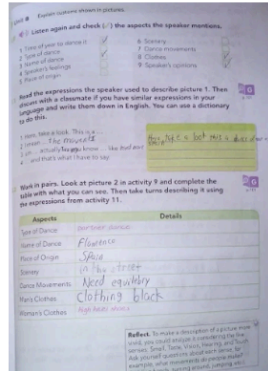 Explain customs shown in pictures.
Listen again and check (✓) the aspects the speaker mentions.
1 Time of year to dance it
2 Type of dance
3 Name of dance
4 Speaker's feelings
5 Place of origin
6 Scenery
7 Dance movements
8 Clothes
9 Speaker's opinions
Read the expressions the speaker used to describe picture 1. Then
discuss with a classmate if you have similar expressions in your
language and write them down in English. You can use a dictionary
to do this.
take a look. This is a
The
know... like
and that's what I have to say
take a look this is
Work in pairs. Look at picture 2 in activity 9 and complete the
table with what you can see. Then take turns describing it using
the expressions from activity 11.
Aspects Details
Type of Dance
Name of Dance Flamenco
Place of Origin
Scenery in the street
Dance Movements Need
Man's Clothes Clothing black
Woman's Clothes
Reflect. To make a description of a picture more
vivid, you could analyze it considering the five
senses: Smell, Taste, Vision, Hearing, and Touch.
Ask yourself questions about each sense, for
example, what movements do people make?